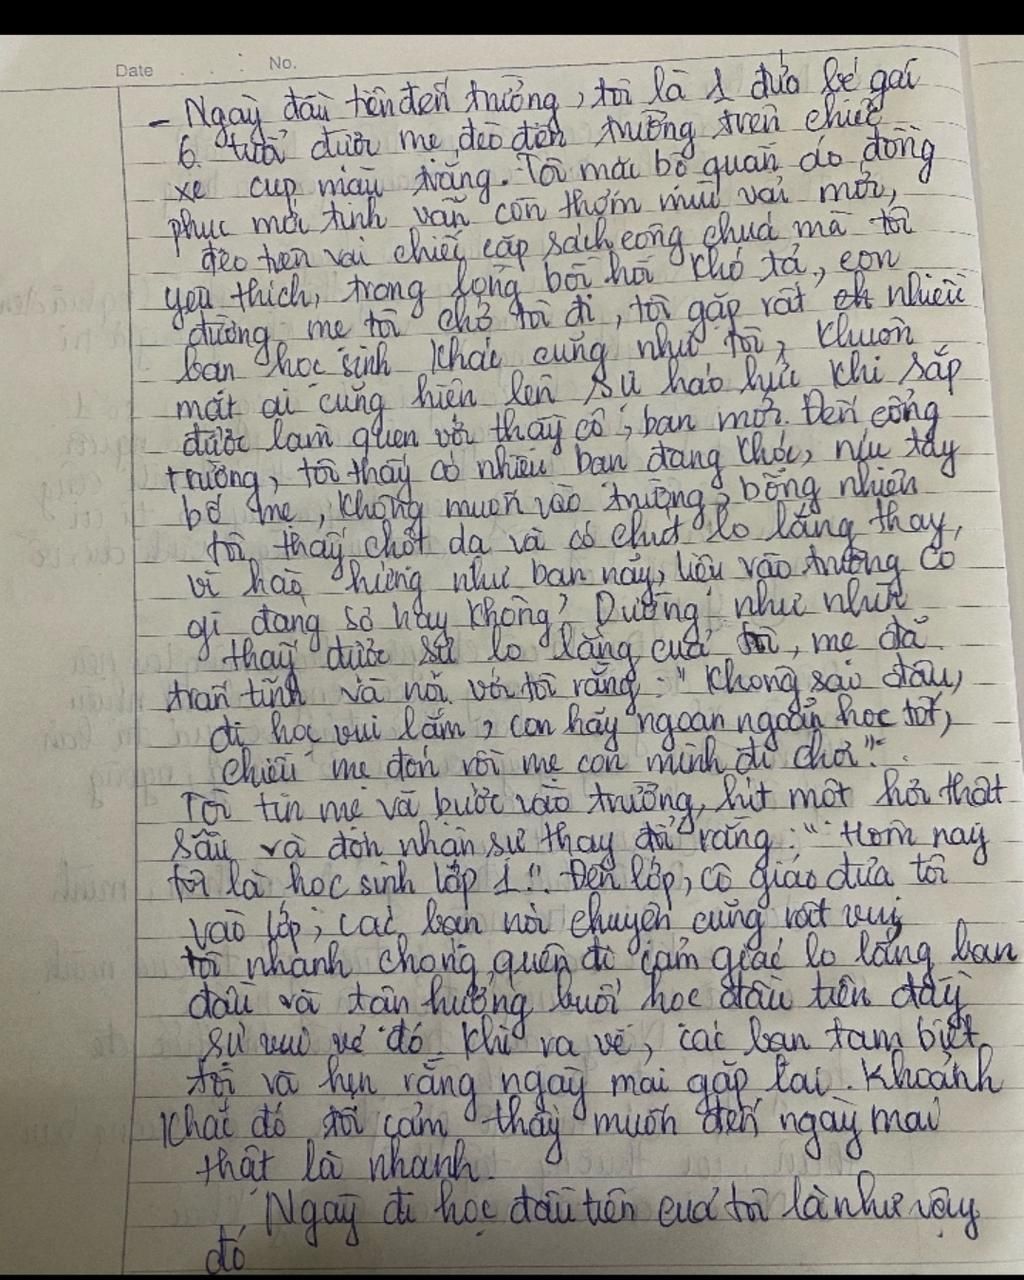 Date No.
- Ngày đầu tiên đến trường, tôi là 1 đứa bé gái
6 tuổi được mẹ đèo đến trường trên chiếc
xe cup màu trắng. Tôi mặc bộ quần áo đồng
phục mới tinh vẫn còn thơm mùi vải mới,
đeo trên vai chiếc cặp sách công chúa mà tôi
yêu thích, trong lòng bồi hồi khó tả, con
đường mẹ tôi chở tôi đi, tôi gặp rất nhiều
bạn học sinh khác cũng như tôi, khuôn
mặt ai cũng hiện lên sự háo hức khi sắp
được làm quen với thầy cô, bạn mới. Đến cổng
trường, tôi thấy có nhiều bạn đang khóc, níu tay
bố mẹ, không muốn vào trường, bỗng nhiên
tôi thấy chột dạ và có chút lo lắng thay,
vì hào hứng như ban nãy, liệu vào trường có
gì đáng sợ hay không? Dường như nhìn
thấy được sự lo lắng của tôi, mẹ đã
trấn tĩnh và nói với tôi rằng: "Không sao đâu,
đi học vui lắm, con hãy ngoan ngoãn học tốt,
chiều mẹ đón rồi mẹ con mình đi chơi".
Tôi tin mẹ và bước vào trường, hít một hơi thật
sâu và đón nhận sự thay đổi rằng: "Hôm nay
tôi là học sinh lớp 1". Đến lớp, cô giáo đưa tôi
vào lớp, các bạn nói chuyện cũng rất vui,
tôi nhanh chóng quên đi cảm giác lo lắng ban
đầu và tận hưởng buổi học đầu tiên đầy
sự vui vẻ đó. Khi ra về, các bạn tạm biệt
tôi và hẹn rằng ngày mai gặp lại. Khoảnh
khắc đó tôi cảm thấy muốn đến ngày mai
thật là nhanh.
Ngày đi học đầu tiên của tôi là như vậy
đó